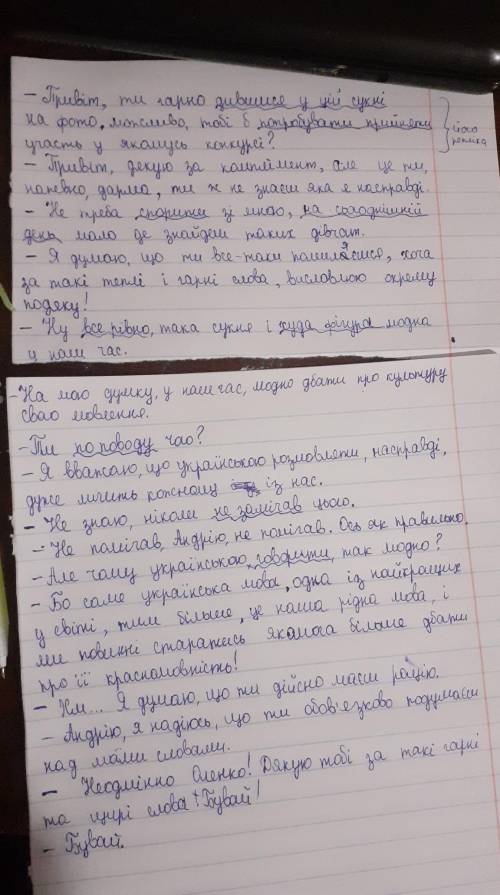 - Привіт, ти гарно дивишся у цій сукні
на фото, можливо, тобі б попробувати прийняти
участь у якомусь конкурсі?
його репліка
- Привіт, дякую за комплімент, але це ти,
напевно, дарма, ти ж не знаєш яка я насправді.
- Не треба спорити зі мною, на сьогоднішній
день мало де знайдеш таких дівчат.
- Я думаю, що ти все-таки помиляєшся, хоча
за такі теплі і гарні слова, висловлюю окрему
подяку!
- Ну все рівно, така сукня і худа фігура модна
у наш час.
- На мою думку, у наш час, модно дбати про культуру
свого мовлення.
- Ти по поводу чого?
- Я вважаю, що українською розмовляти, насправді,
дуже личить кожному із нас.
- Не знаю, ніколи не замічав цього.
- Не помічав, Андрію, не помічав. Ось як правильно.
- Але чому українською говорити, так модно?
- Бо саме українська мова, одна із найкращих
у світі, тим більше, це наша рідна мова, і
ми повинні старатись якомога більше дбати
про її красномовність!
- Хм... Я думаю, що ти дійсно маєш рацію.
- Андрію, я надіюсь, що ти обов'язково подумаєш
над моїми словами.
- Неодмінно Оленко! Дякую тобі за такі гарні
та щирі слова! Бувай!
- Бувай.